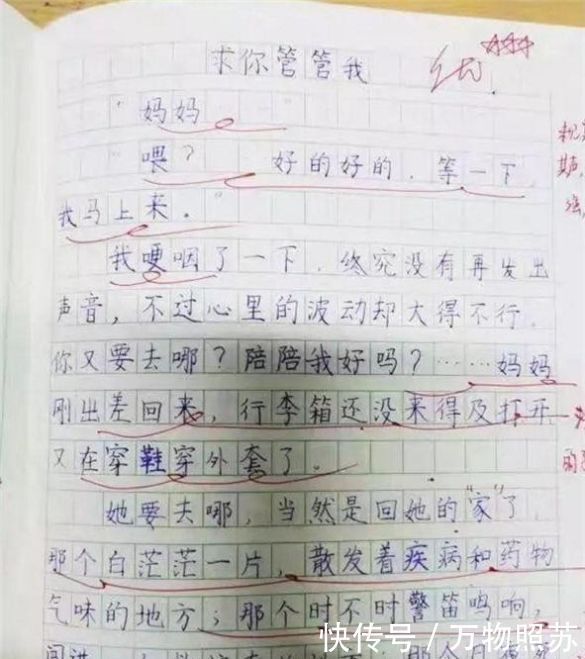 求你管管我
优
"妈妈……"
"喂? 好的好的,等一下,
我马上来."
我哽咽了一下,终究没有再发出
声音,不过心里的波动却大得不行.
你又要去哪?陪陪我好吗?……妈妈
刚出差回来,行李箱还没来得及打开
又在穿鞋穿外套了。
她要去哪,当然是回她的"家"了
那个白茫茫一片,散发着疾病和药物
气味的地方;那个时不时警笛鸣响,
快传号/万物照苏